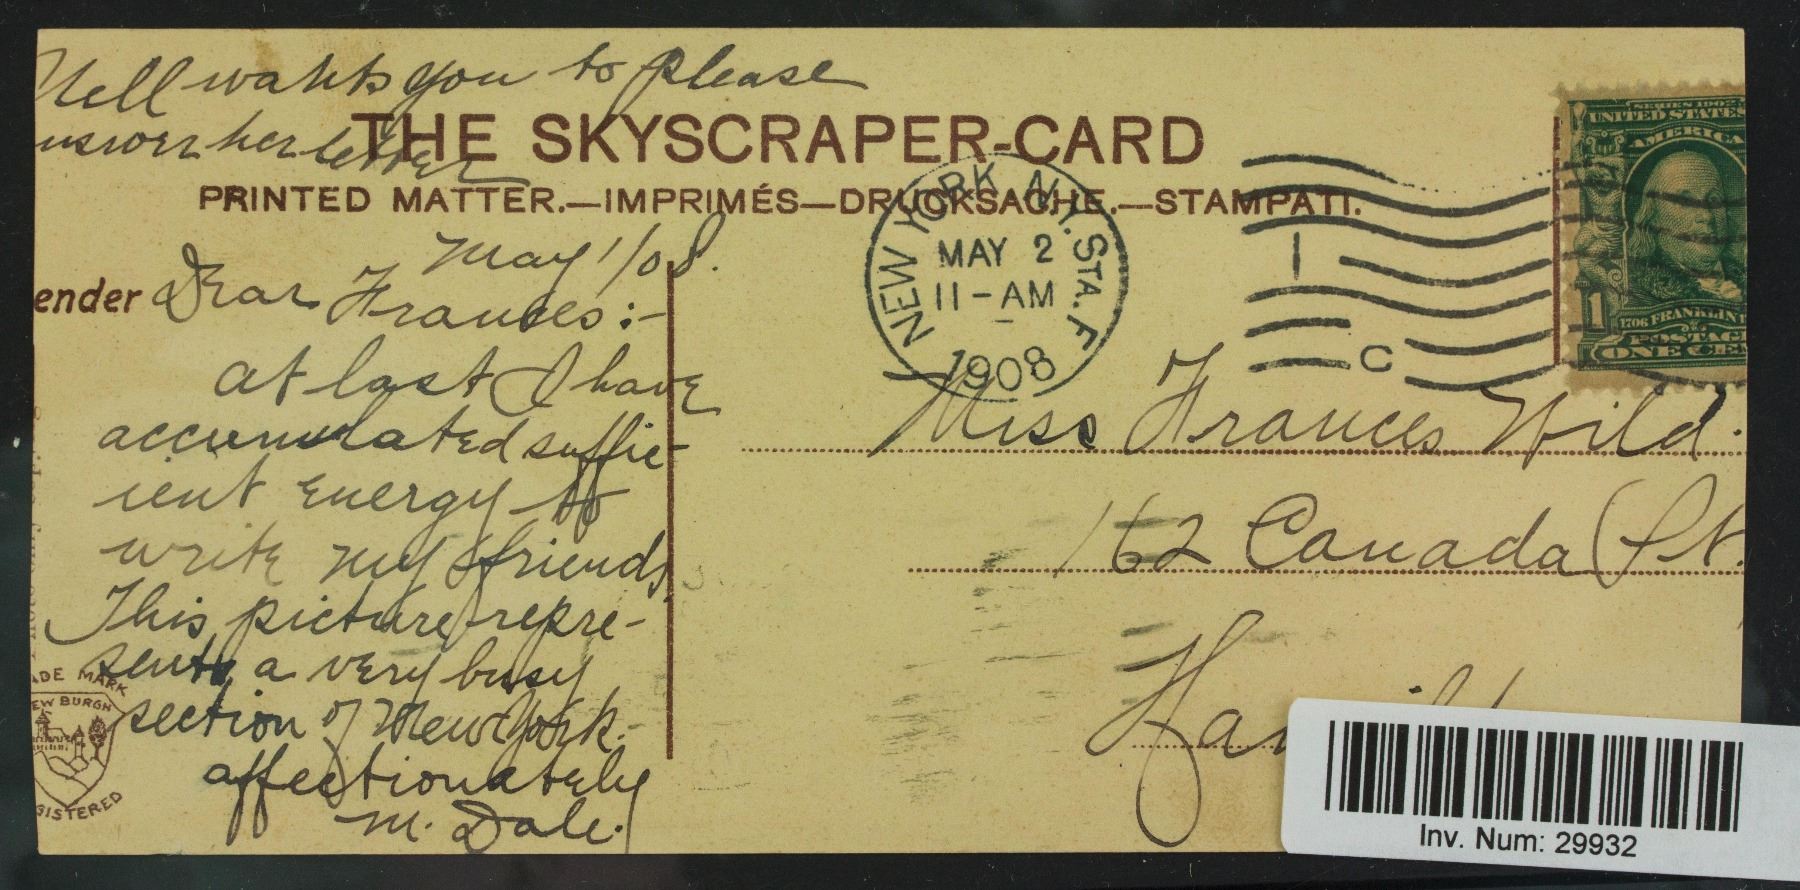 Nell wants you to please
nswer her letter
THE SKYSCRAPER-CARD
PRINTED MATTER.—IMPRIMÉS—DRUCKSACHE.—STAMPATI.
NEW YORK N.Y. STA. F
MAY 2
11-AM
1908
1
C
SERIES 1902
UNITED STATES
AMERICA
1
1706 FRANKLIN 1
POSTAG
ONE CEN
ender
May 1/08.
Dear Frances:-
At last I have
accumulated suffic-
ient energy to
write my friends.
This picture repre-
sents a very busy
section of New York.
affectionately
M. Dale.
Miss Frances Wild.
162 Canada St.
Hamilt
ADE MARK
EW BURGH
GISTERED
Inv. Num: 29932